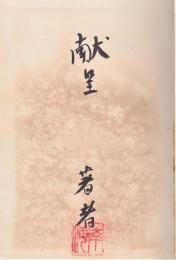 献呈
著者